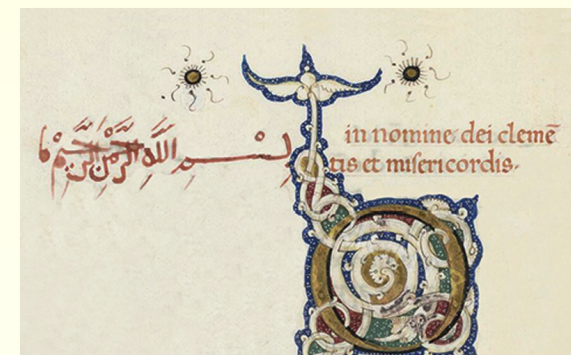 بِسْمِ اللَّهِ الرَّحْمَنِ الرَّحِيمِ
in nomine dei clemē
tis et misericordis.